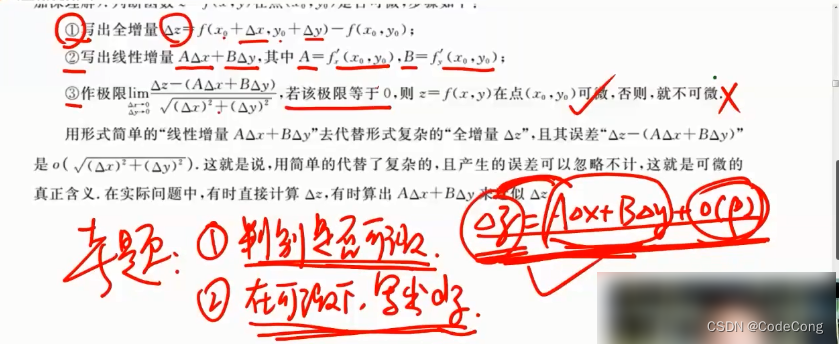 加深理解). 判断函数z=f(x,y)在点(x₀,y₀)是否可微,步骤如下:
①写出全增量Δz=f(x₀+Δx,y₀+Δy)-f(x₀,y₀);
②写出线性增量AΔx+BΔy,其中A=f′ₓ(x₀,y₀),B=f′ᵧ(x₀,y₀);
③作极限lim Δx→0 Δy→0 (Δz-(AΔx+BΔy))/√((Δx)²+(Δy)²),若该极限等于0,则z=f(x,y)在点(x₀,y₀)可微,否则,就不可微.
用形式简单的“线性增量AΔx+BΔy”去代替形式复杂的“全增量Δz”,且其误差“Δz-(AΔx+BΔy)”
是o(√((Δx)²+(Δy)²)).这就是说,用简单的代替了复杂的,且产生的误差可以忽略不计,这就是可微的
真正含义.在实际问题中,有时直接计算Δz,有时算出AΔx+BΔy来近似Δz
Δz=AΔx+BΔy+o(ρ)
考题: ① 判别是否可微.
② 在可微下,写出dz.
CSDN @CodeCong